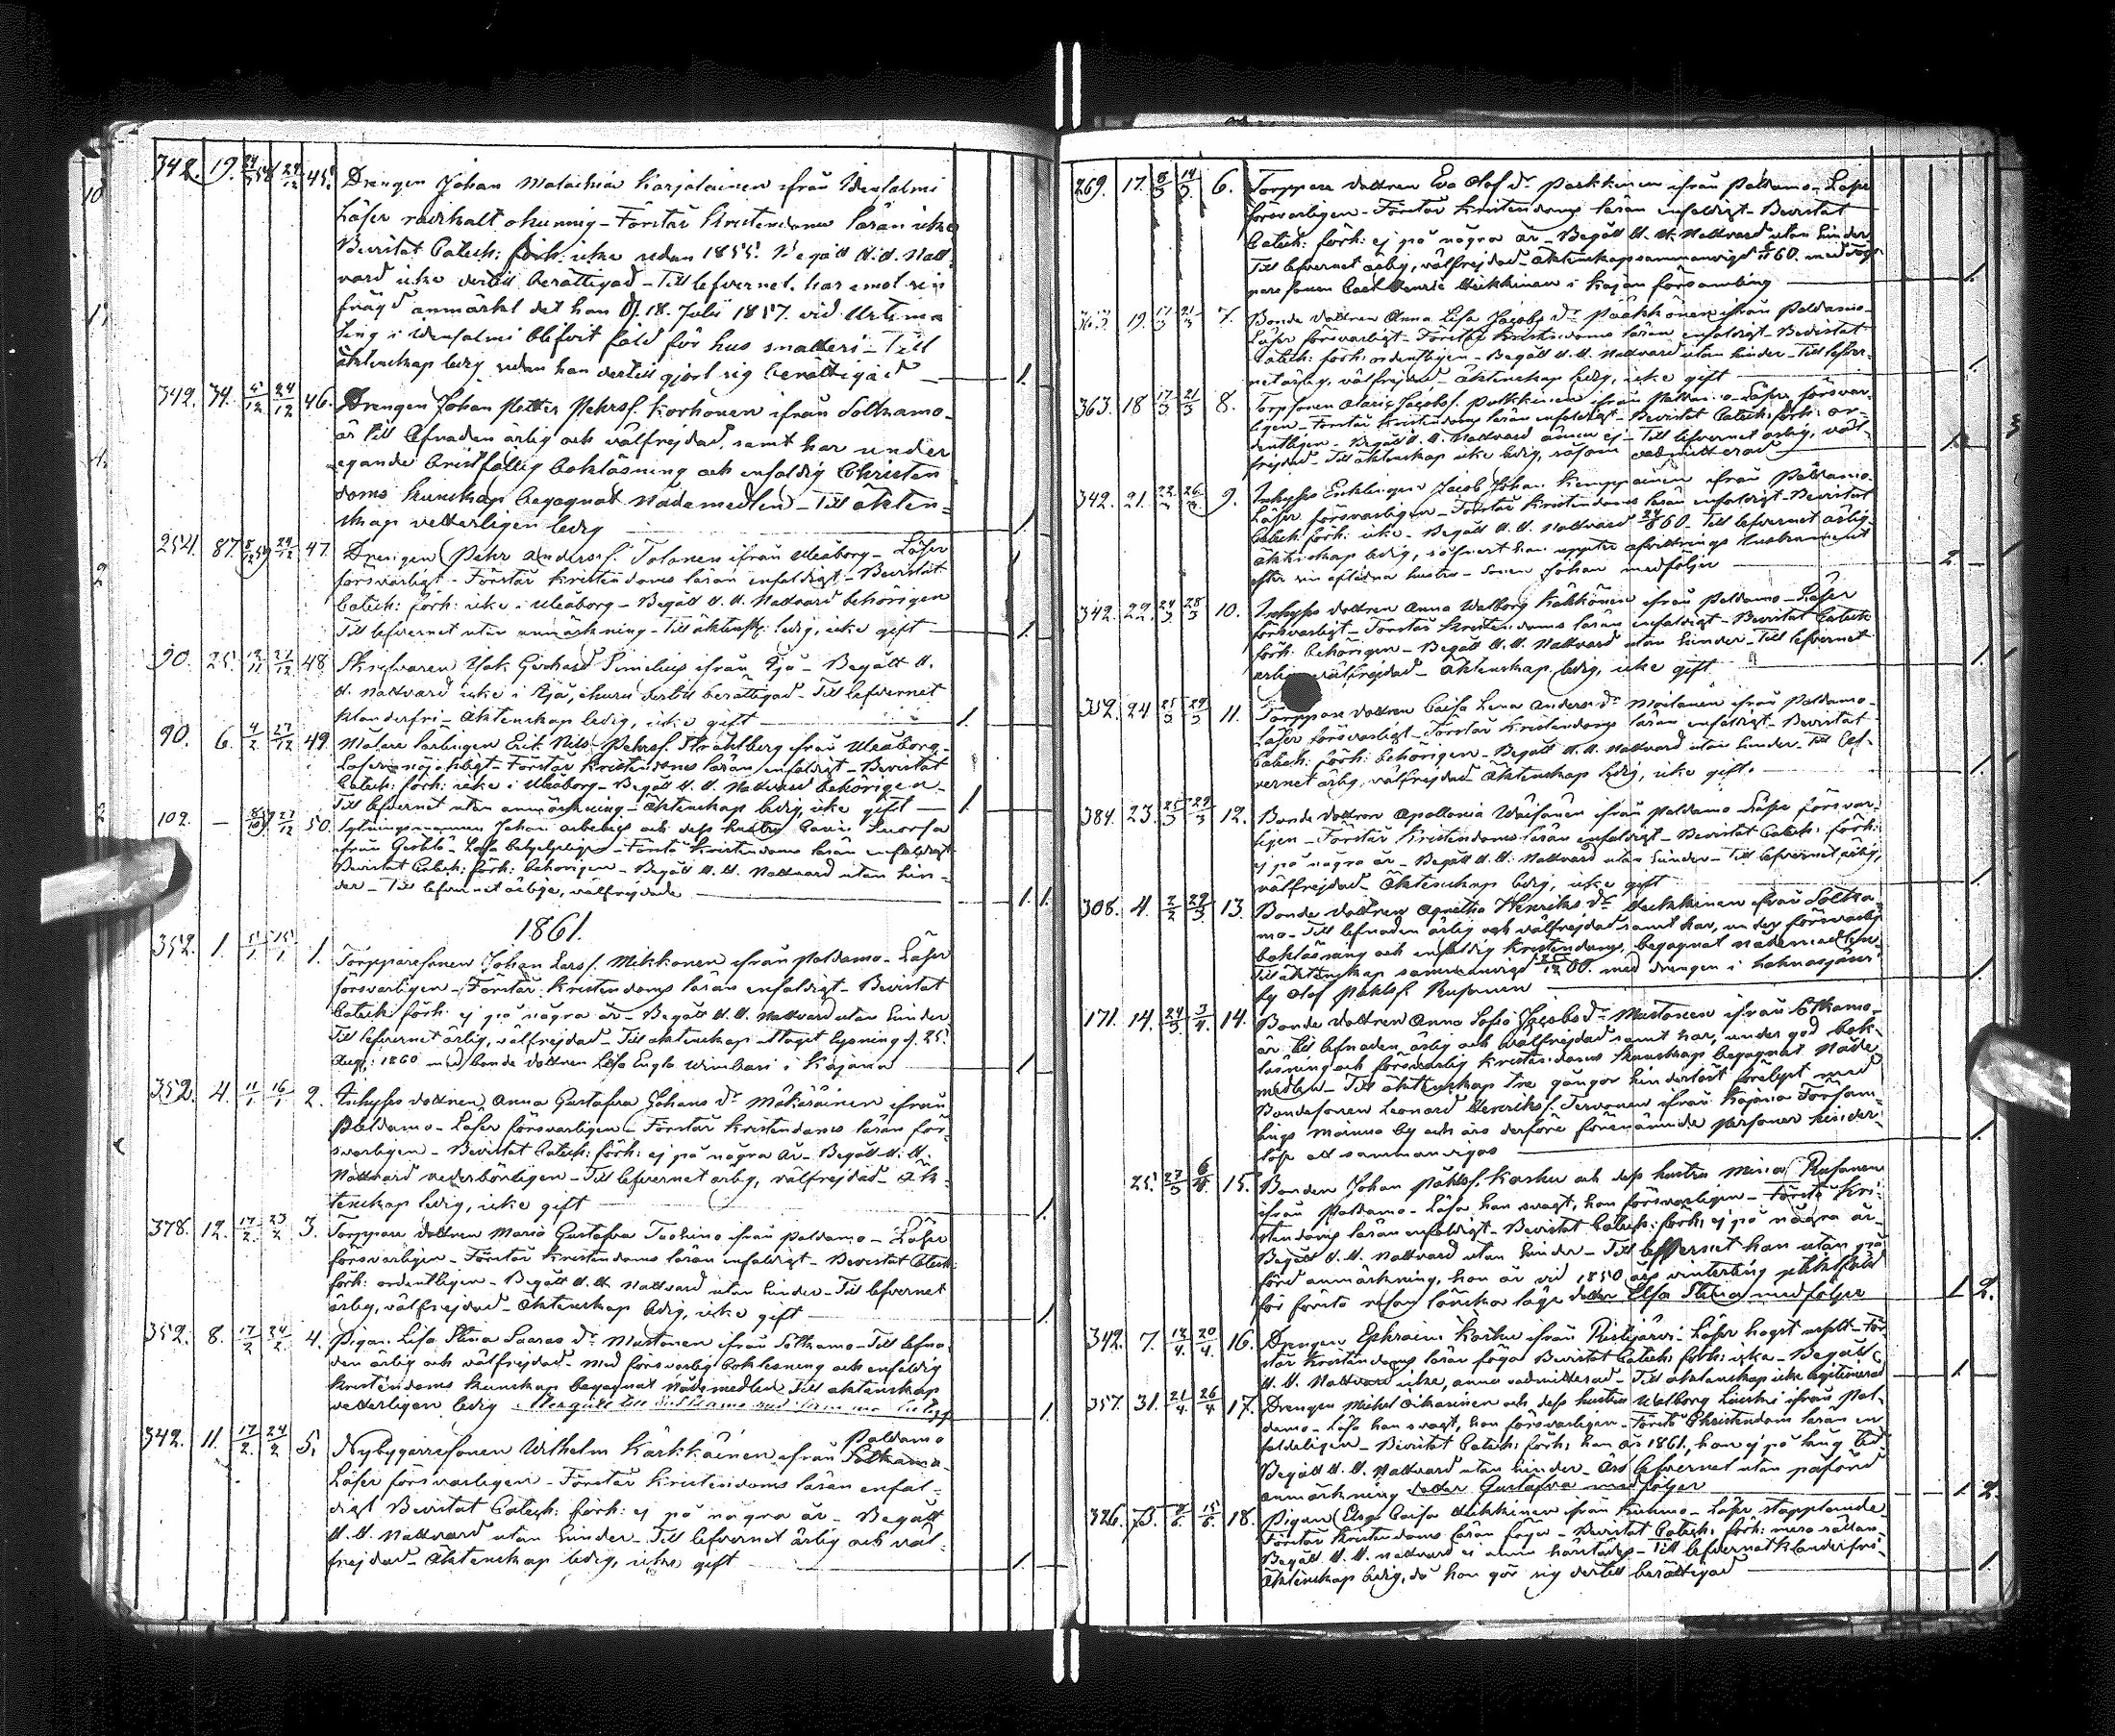 342. 19. 24/3 58 24/12 45. Drengen Johan Malachia Karjalainen ifrån Idensalmi
Läser okunnig – Förstår Kristendoms läran icke
Bevistat Catech: förh: icke sedan 1855. Begått H.H. Natt
vard icke dertill berättigad – Till lefvernet har emot sin
frägd anmärkt det han d. 18. Julii 1857. vid Urtima
Ting i Idensalmi blifvit fäld för hus snatteri – Till
äktenskap ledig sedan han dertill gjort sig berättigad 1.
349. 34. 5/12 24/12 46. Drengen Johan Petter Pehrsf. Korhonen ifrån Sotkamo –
är till lefnaden ärlig och välfrejdad, samt har under
egande bristfällig bokläsning och enfaldig Christen
doms kunskap begagnat Nådemedlen – Till äkten-
skap vetterligen ledig 1.
254. 87. 24/12 47. Drengen Pehr Andersf. Tolonen ifrån Uleåborg – Läser
försvarligt – Förstår Kristendoms läran enfaldigt – Bevistat
Catech: förh: icke i Uleåborg – Begått H.H. Nattvard behörigen
Till lefvernet utan anmärkning – Till äktensk: ledig, icke gift 1.
90. 25. 27/12 48. Skrifvaren Isak Gerhard Simelius ifrån Ijo – Begått H.
H. Nattvard icke i Ijo, ehuru dertill berättigad – Till lefvernet
klanderfri – Äktenskap ledig, icke gift 1.
90. 6. 4/2 27/12 49. Målare lärlingen Erik Nils Pehrsf. Stråhlberg ifrån Uleåborg –
Läser nöjaktigt – Förstår Kristendoms läran enfaldigt – Bevistat
Catech: förh: icke i Uleåborg – Begått H.H. Nattvard behörigen –
Till lefvernet utan anmärkning – Äktenskap ledig icke gift 1.
109. – 27/12 50. Sytningsmannen Johan och dess hustru
ifrån – Läsa – Förstå Kristendoms läran enfaldigt
Bevistat Catech: förh: behörigen – Begått H.H. Nattvard utan hin-
der – Till lefvernet ärlige, välfrejdade 1. 1.
1861.
352. 1. 5/1 15/1 1. Torpparesonen Johan Larsf. Mikkonen ifrån Paldamo – Läser
försvarligen – Förstår Kristendoms läran enfaldigt – Bevistat
Catech: förh: ej på några år – Begått H.H. Nattvard utan hinder
Till lefvernet ärlig, välfrejdad – Till äktenskap uttagit lysning d. 25.
Aug: 1860 med bonde dottren Lisa Engla i Kajana 1.
352. 4. 11/1 16/1 2. Inhyses dottren Anna Gustafva Johans dr Mäkäräinen ifrån
Paldamo – Läser försvarligen – Förstår Kristendoms läran för-
svarligen – Bevistat Catech: förh: ej på några år – Begått H.H.
Nattvard vederbörligen – Till lefvernet ärlig, välfrejdad – Äk-
tenskap ledig, icke gift 1.
378. 12. 17/2 23/2 3. Torppare dottren Maria Gustafva Tuohino ifrån Paldamo – Läser
försvarligen – Förstår Kristendoms läran enfaldigt – Bevistat Catech:
förh: ordentligen – Begått H.H. Nattvard utan hinder – Till lefvernet
ärlig, välfrejdad – Äktenskap ledig, icke gift 1.
352. 8. 17/2 24/2 4. Pigan Lisa Stina Saaras dr Mustonen ifrån Sotkamo – Till lefna-
den ärlig och välfrejdad – med försvarlig bokläsning och enfaldig
Kristendoms kunskap begagnat Nådemedlen Till äktenskap
vetterligen ledig 1.
342. 11. 17/2 24/2 5. Nybyggaresonen Wilhelm Kärkkäinen ifrån Sotkamo Paldamo
Läser försvarligen – Förstår Kristendoms läran enfal-
digt Bevistat Catech: förh: ej på några år – Begått
H.H. Nattvard utan hinder – Till lefvernet ärlig och väl-
frejdad – Äktenskap ledig, icke gift 1.
269. 17. 8/3 14/3 6. Torppare dottren Eva Olof dr Parkkinen ifrån Paldamo – Läser
försvarligen – Förstår Kristendoms läran enfaldigt – Bevistat
Catech: förh: ej på några år – Begått H.H. Nattvard utan hinder
Till lefvernet ärlig, välfrejdad – Äktenskap sammanvigd 60. med Torp-
pare sonen Carl Henric Heikkinen i Kajan församling 1.
363 19. 17/3 21/3 7. Bonde dottren Anna Lisa Jacobs dr Pääkkönen ifrån Paldamo –
Läser försvarligt – Förstår Kristendoms läran enfaldigt – Bevistat
Catech: förh: ordentligen – Begått H.H. Nattvard utan hinder – Till lefver-
net ärlig, välfrejdad – Äktenskap ledig, icke gift 1.
363. 18 17/3 21/3 8. Torpsonen Jacobsf. Pulkkinen ifrån Paldamo – Läser försvar-
ligen – Förstår Kristendoms läran enfaldigt – Bevistat Catech: förh: or-
dentligen – Begått H.H. Nattvard ännu ej – Till lefvernet ärlig, väl-
frejdad – Till äktenskap icke ledig, såsom oadmitterad 1.
342. 21. 22/3 26/3 9. Inhyses Enklingen Jacob Johan Kemppainen ifrån Paldamo
Läser försvarligen – Förstår Kristendoms läran enfaldigt – Bevistat
Catech: förh: icke – Begått H.H. Nattvard 60 – Till lefvernet ärlig –
Äktenskap ledig, såframt han uppter afvittrings Instrument
efter sin aflidna hustru – Sonen Johan medföljer 2.
342. 22. 24/3 28/3 10. Inhyses dottren Anna Walborg Kukkonen ifrån Paldamo – Läser
försvarligt – Förstår Kristendoms läran enfaldigt – Bevistat Catech:
förh. behörigen – Begått H.H. Nattvard utan hinder – Till lefvernet
ärlig, välfrejdad – Äktenskap ledig, icke gift 1.
24 25/3 29/3 11. Torppare dottren Caisa Lena Anders dr Moilanen ifrån Paldamo –
Läser försvarligt – Förstår Kristendoms läran enfaldigt – Bevistat
Catech: förh: behörigen – Begått H.H. Nattvard utan hinder – Till lef-
vernet ärlig, välfrejdad – Äktenskap ledig, icke gift. 1.
384. 23. 25/3 29/3 12. Bonde dottren Apollonia Wäisänen ifrån Paldamo – Läser försvar-
ligen – Förstår Kristendoms läran enfaldigt – Bevistat Catech: förh:
ej på några år – Begått H.H. Nattvard utan hinder – Till lefvernet ärlig,
välfrejdad – Äktenskap ledig, icke gift 1.
308. 4. 2/2 29/3 13. Bonde dottren Agnetha Henriks dr Heikkinen ifrån Sotka-
mo – Till lefnaden ärlig och välfrejdad samt har, under försvarlig
bokläsning och enfaldig Kristendoms, begagnat nådemedlen –
Till äktenskap sammanvigd 60. med drengen i
by Olof Påhlsf. Rusanen 1.
171. 14. 24/3 3/4 14. Bonde dottren Anna Sofia Jacobs dr Mustonen ifrån Sotkamo –
är till lefnaden ärlig och välfrejdad samt har, under god bok-
läsning och försvarlig Kristendoms kunskap begagnat Nåde
medlen – Till äktenskap tre gångor hinderlöst förelyst med
Bondesonen Leonard Henriksf. Tervonen ifrån Kajana Försam-
lings Mainua by och äro derföre förenämnde personer hinder-
löse att sammanvigas 1.
25. 27/3 6/4 15. Bonden Johan Påhlsf. Karhu och dess hustru Maria Rusanen
ifrån Paldamo – Läsa han svagt, hon försvarligen – Förstå Kri-
stendoms läran enfaldigt – Bevistat Catech: förh: ej på några år –
Begått H.H. Nattvard utan hinder – Till lefvernet hon utan på-
förd anmärkning, han är vid 1850 års vinterting pliktfäld
för första resan lönska läge dotter Elsa Stina medföljer 1 2.
342. 7. 12/4 20/4 16. Drengen Ephraim Karhu ifrån Ristijärvi – Läser högst uselt – För-
står Kristendoms läran föga Bevistat Catech: förh: icke – Begått
H.H. Nattvard icke, ännu oadmitterad – Till äktenskap icke legitimerad 1.
357. 31. 21/4 26/4 17. Drengen Michel Oikarinen och dess hustru Walborg ifrån Pal-
damo – Läsa han svagt, hon försvarligen – Förstå Christendoms läran en-
faldeligen – Bevistat Catech: förh: han år 1861, hon ej på lång tid
Begått H.H. Nattvard utan hinder – Äro lefvernet utan påförd
anmärkning dotter Gustafva medföljer 1 2.
326. 18. Pigan Elsa Caisa Heikkinen från Kuhmo – Läser stapplande
Förstår Kristendoms läran föga – Bevistat Catech: förh: mera sällan –
Begått H.H. nattvard – Till lefvernet klanderfri –
Äktenskap ledig, då hon gör sig dertill berättigad 1.